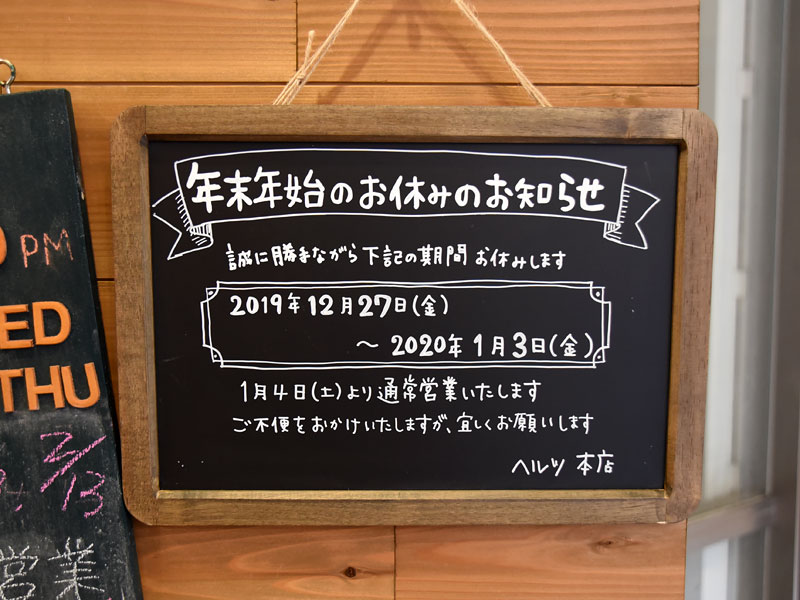 年末年始のお休みのお知らせ
誠に勝手ながら下記の期間お休みします
2019年12月27日(金)
～2020年1月3日(金)
1月4日(土)より通常営業いたします
ご不便をおかけいたしますが、宜しくお願いします
ヘルツ 本店
PM
ED
THU
2/13
営業